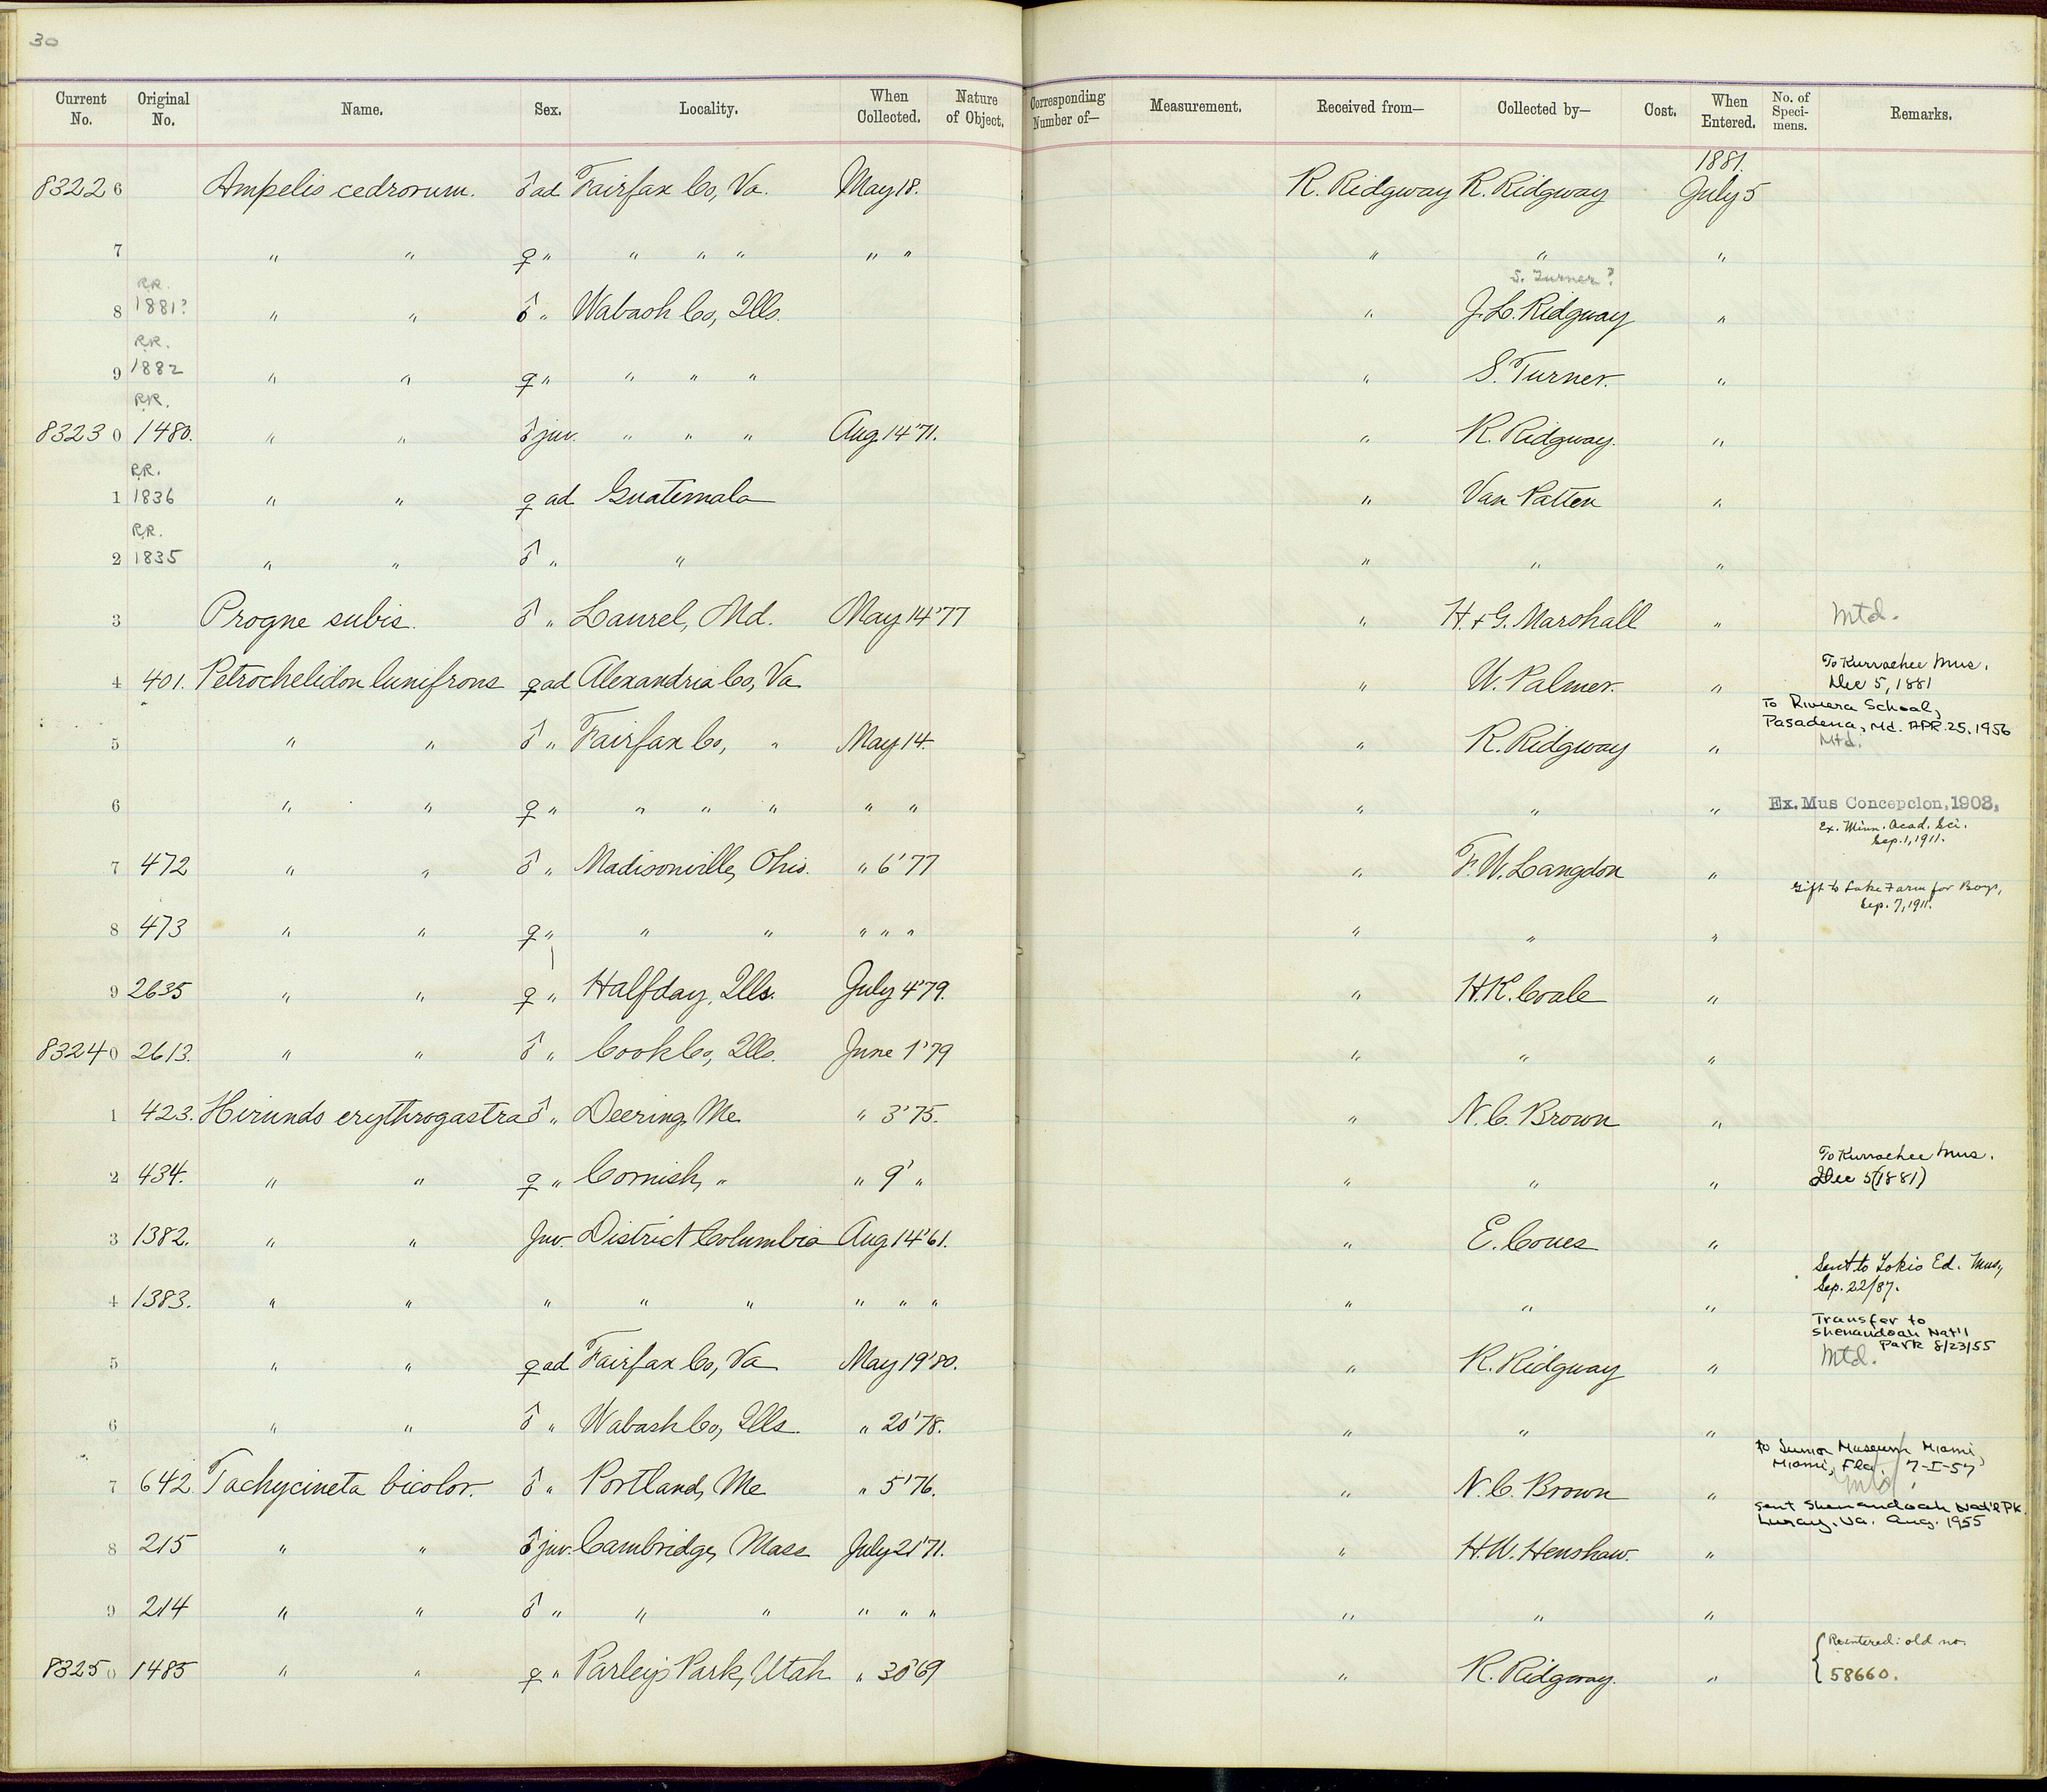 30
Current No. Original No. Name. Sex. Locality. When Collected. Nature of Object. Corresponding Number of— Measurement. Received from— Collected by— Cost. When Entered. No. of Speci-mens. Remarks.
1881.
83226 Ampelis cedrorum. ♂ ad Fairfax Co, Va. May 18. R. Ridgway R. Ridgway July 5
7 " " ♀ " " " " " " " " "
R.R. S. Turner?
8 1881? " " ♂ " Wabash Co, Ills. " J. L. Ridgway "
R.R.
9 1882 " " ♀ " " " " " S. Turner. "
R.R.
83230 1480. " " ♂ juv. " " " Aug. 14'71. " R. Ridgway. "
R.R.
1 1836 " " ♀ ad Guatemala " Van Patten "
R.R.
2 1835 " " ♂ " " " " "
3 Progne subis. ♂ " Laurel, Md. May 14'77 " H. & G. Marshall " Mtd.
4 401. Petrochelidon lunifrons ♀ ad Alexandria Co, Va " W. Palmer. " To Kurrachee Mus.
Dec 5, 1881
To Riviera School,
Pasadena, Md. APR. 25, 1956
5 " " ♂ " Fairfax Co, " May 14. " R. Ridgway " Mtd.
6 " " ♀ " " " " " " " " " Ex. Mus Concepcion, 1903,
Ex. Minn. Acad. Sci.
Sep. 1, 1911.
7 472 " " ♂ " Madisonville, Ohio. " 6'77 " F. W. Langdon "
Gift to Lake Farm for Boys,
Sep. 7, 1911.
8 473 " " ♀ " " " " " " " " "
9 2635 " " ♀ " Halfday, Ills. July 4'79. " H. K. Coale "
83240 2613. " " ♂ " Cook Co, Ills. June 1'79 " " "
1 423. Hirundo erythrogastra ♂ " Deering, Me " 3'75. " N. C. Brown "
2 434. " " ♀ " Cornish, " " 9' " " " " To Kurrachee Mus.
Dec 5 (1881)
3 1382. " " Juv. District Columbia Aug 14'61. " E. Coues "
Sent to Tokio Ed. Mus,
Sep. 22/87.
4 1383. " " " " " " " " " " "
Transfer to
Shenandoah Nat'l
Park 8/23/55
5 " " ♀ ad Fairfax Co, Va May 19'80. " R. Ridgway " Mtd.
6 " " ♂ " Wabash Co, Ills. " 20'78. " " "
to Junior Museum Miami,
Miami, Fla. 7-I-57
7 642 Tachycineta bicolor. ♂ " Portland, Me " 5'76. " N. C. Brown " Mtd
Sent Shenandoah Nat'l Pk.
Luray, Va. Aug. 1955
8 215 " " ♂ juv. Cambridge, Mass July 21'71. " H. W. Henshaw. "
9 214 " " ♂ " " " " " " " " "
83250 1485 " " ♀ " Parley's Park, Utah " 30'69 " R. Ridgway. " Reentered: old no.
58660.